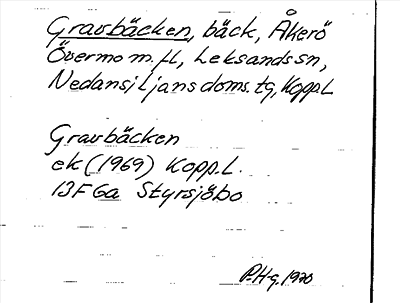 Gravbäcken, bäck, Åkerö
Övermo m.fl., Leksands sn,
Nedansiljans doms. tg, Kopp.L
Gravbäcken
ek (1969) Kopp.L.
13F 6a Styrsjöbo
P.H-g. 1970